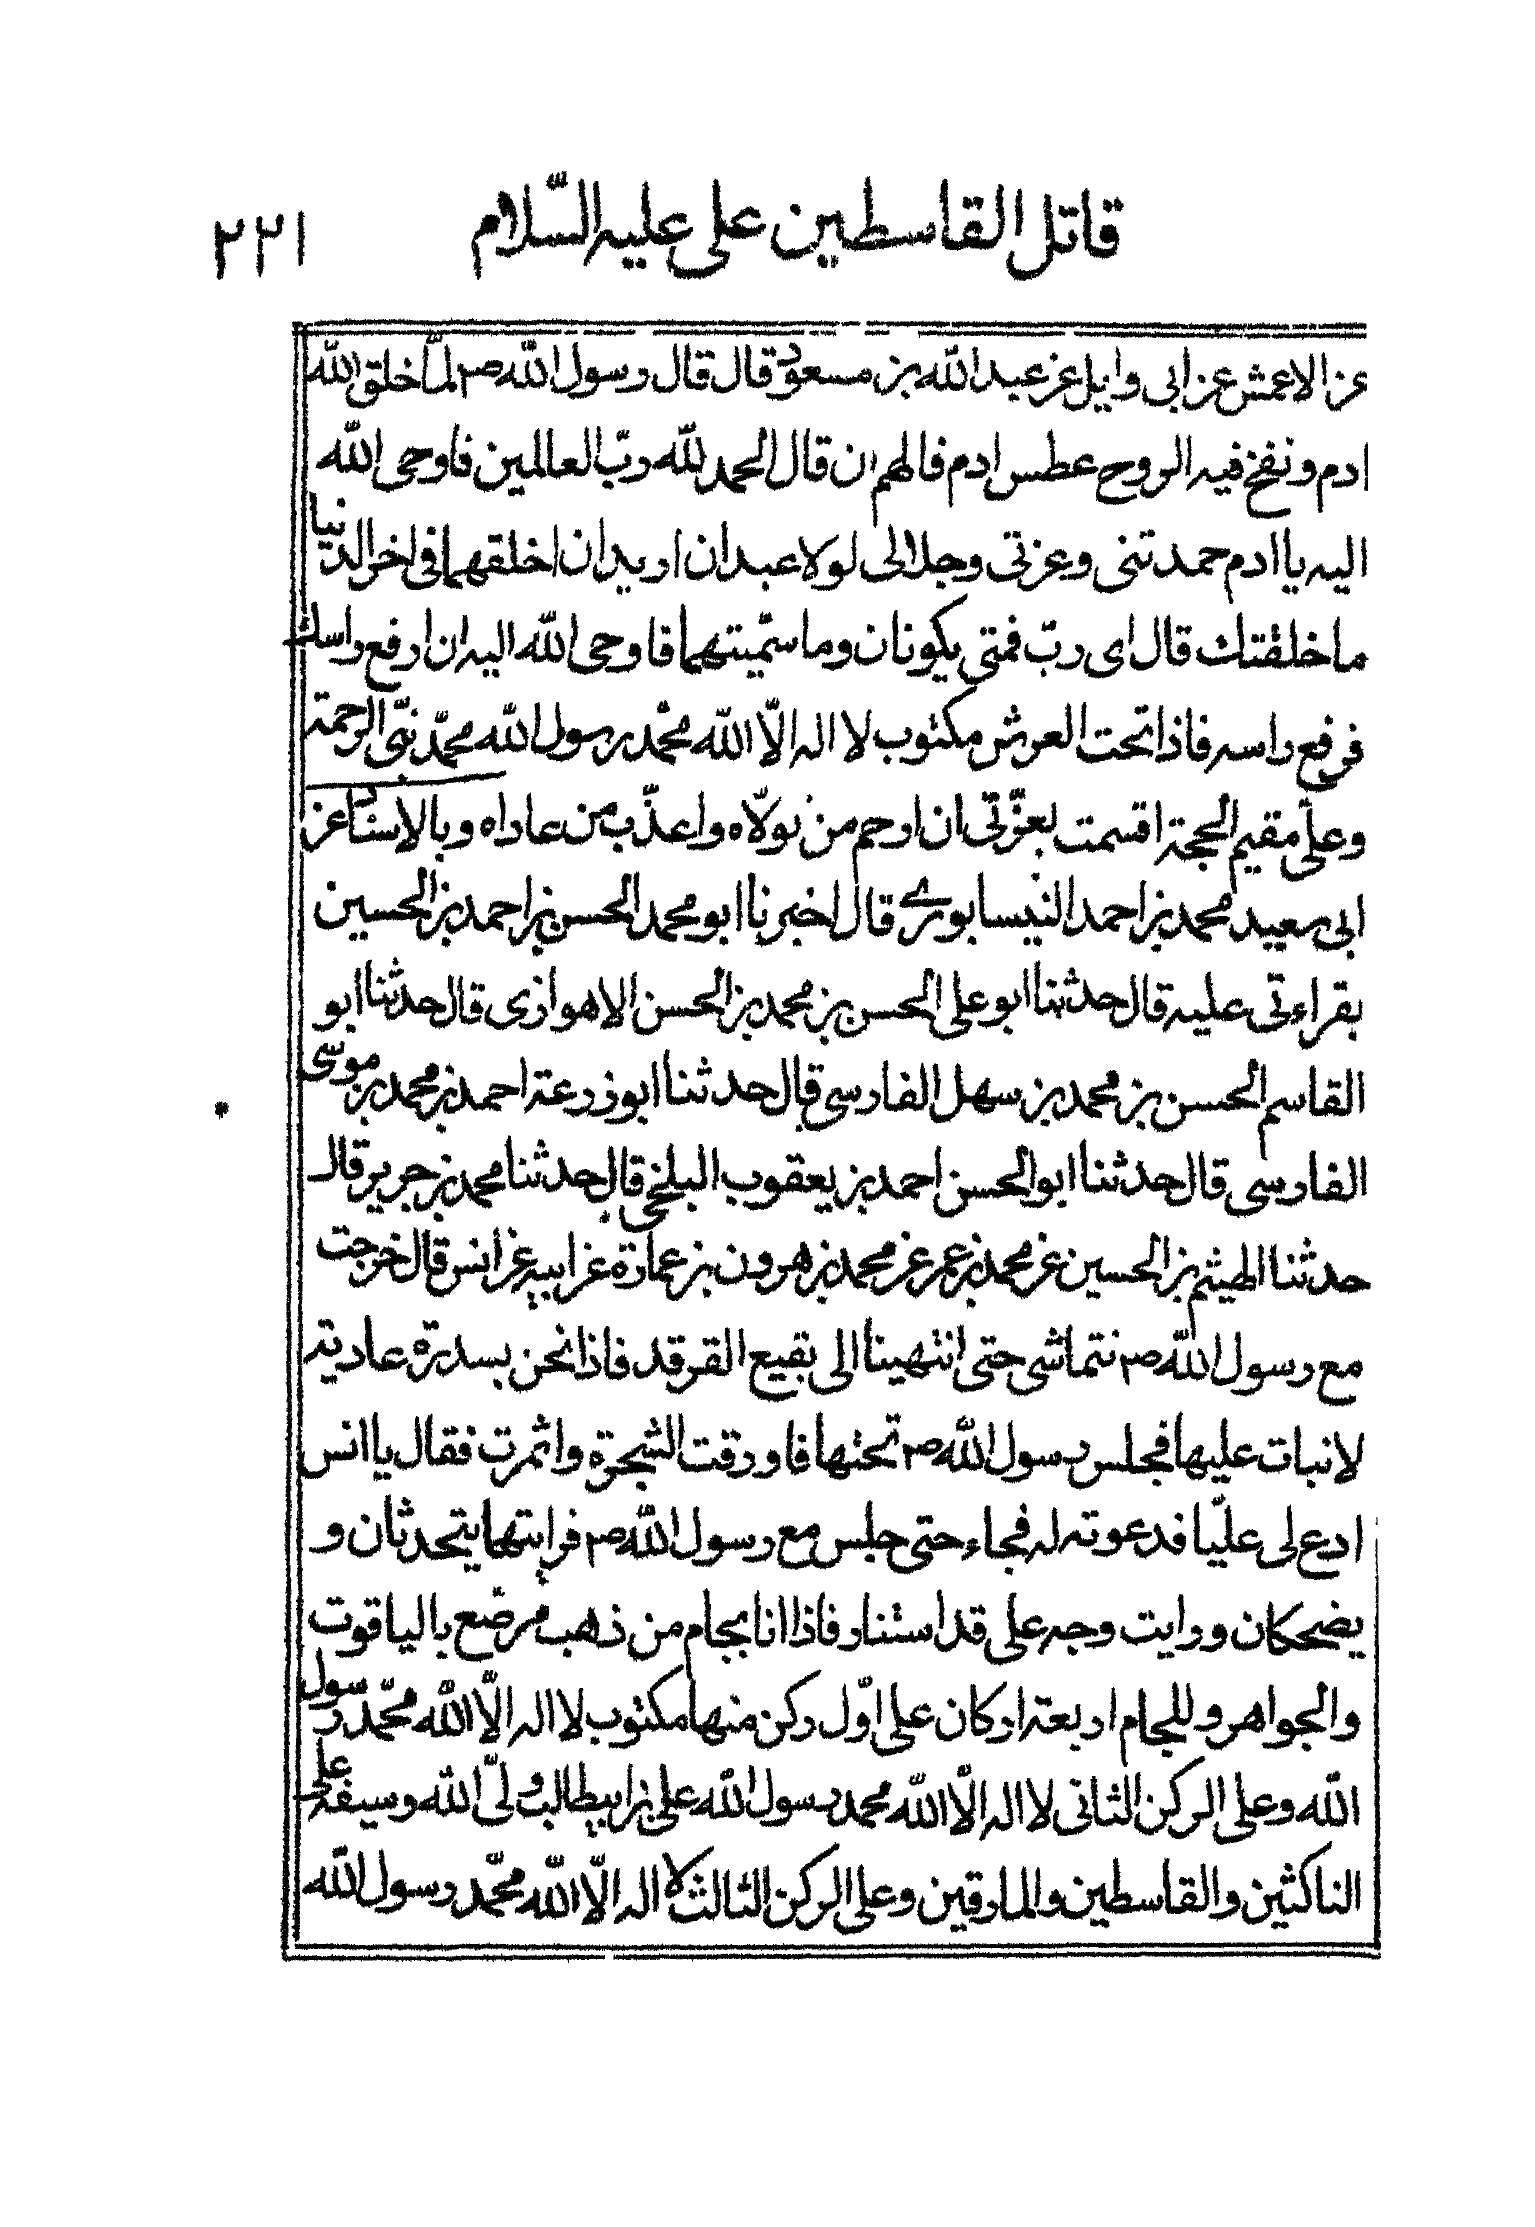 قاتل القاسطين على عليه السّلام ٢٢١
عن الاعمش عن ابى وايل عن عبد الله بن مسعود قال قال رسول الله ص لمّا خلق الله
ادم ونفخ فيه الروح عطس ادم فالهم ان قال الحمد لله ربّ العالمين فاوحى الله
اليه يا ادم حمدتنى وعزتى وجلالى لولا عبدان اريد ان اخلقهما فى اخر الدنيا
ما خلقتك قال اى ربّ فمتى يكونان وما سمّيتهما فاوحى الله اليه ان ارفع راسك
فرفع راسه فاذا تحت العرش مكتوب لا اله الّا الله محمّد رسول الله محمّد نبّى الرحمة
وعلى مقيم الحجة اقسمت بعزّتى ان ارحم من تولّاه واعذّب من عاداه وبالاسناد عن
ابى سعيد محمد بن احمد النيسابورى قال اخبرنا ابو محمد الحسن بن احمد بن الحسين
بقراءتى عليه قال حدثنا ابو على الحسن بن محمد بن الحسن الاهوازى قال حدثنا ابو
القاسم الحسن بن محمد بن سهل الفارسى قال حدثنا ابو زرعة احمد بن محمد بن موسى
الفارسى قال حدثنا ابو الحسن احمد بن يعقوب البلخى قال حدثنا محمد بن جرير قال
حدثنا الهيثم بن الحسين عن محمد بن عمر عن محمد بن هرون بن عمارة عن ابيه عن انس قال خرجت
مع رسول الله ص نتماشى حتى انتهينا الى بقيع الغرقد فاذا نحن بسدرة عادية
لا نبات عليها فجلس رسول الله ص تحتها فاورقت الشجرة واثمرت فقال يا انس
ادع لى عليّا فدعوته له فجاء حتى جلس مع رسول الله ص فرايتهما يتحدثان و
يضحكان ورايت وجه على قد استنار فاذا انا بجام من ذهب مرصّع بالياقوت
والجواهر وللجام اربعة اركان على اوّل ركن منها مكتوب لا اله الّا الله محمّد رسول
الله وعلى الركن الثانى لا اله الّا الله محمد رسول الله على بن ابيطالب ولىّ الله وسيفه على
الناكثين والقاسطين والمارقين وعلى الركن الثالث لا اله الّا الله محمّد رسول الله